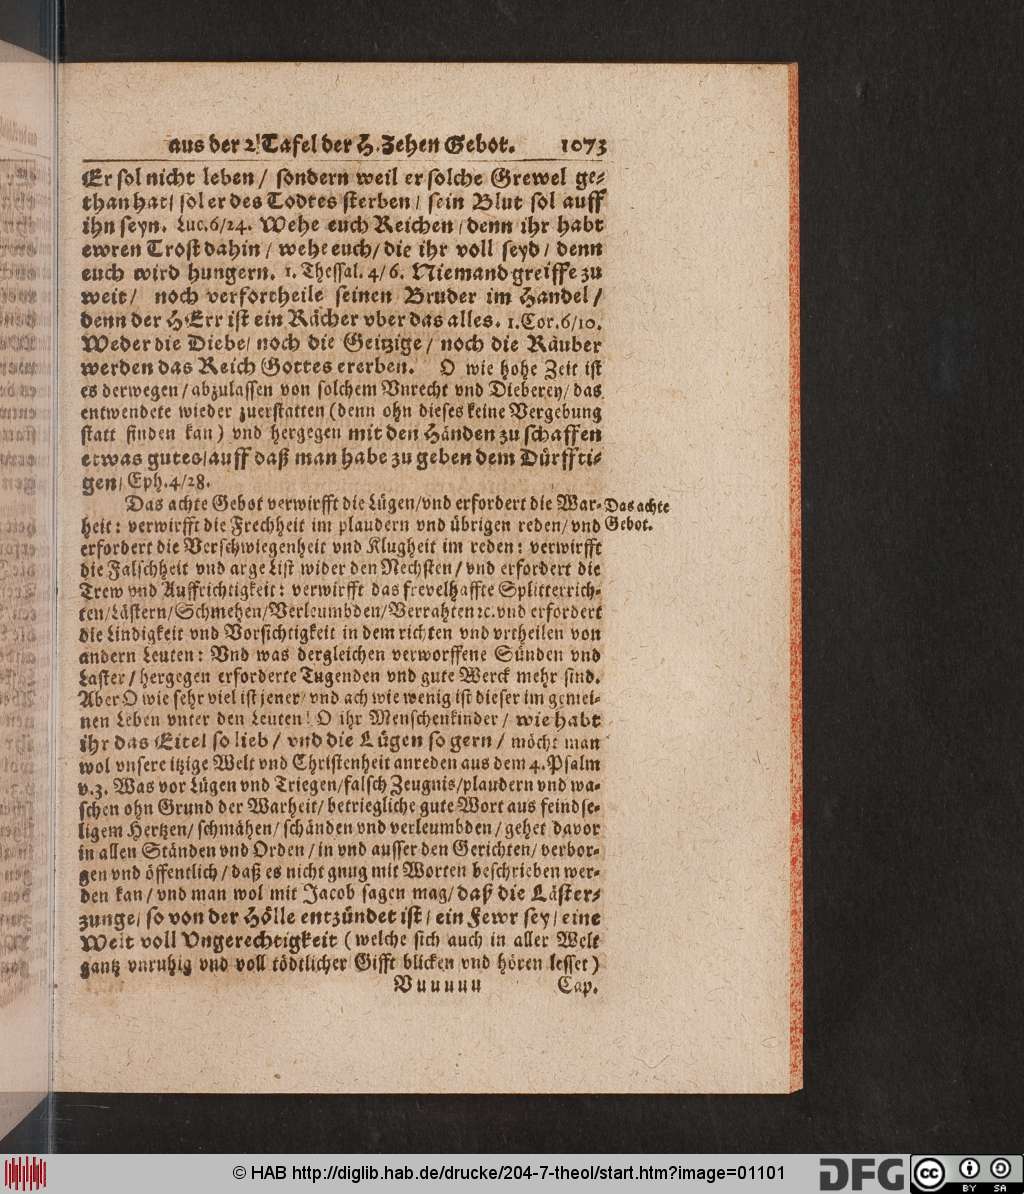 aus der 2. Tafel der H. Zehen Gebot. 1073
Er sol nicht leben / sondern weil er solche Grewel ge-
than hat / sol er des Todtes sterben / sein Blut sol auff
ihn seyn. Luc. 6/24. Wehe euch Reichen / denn ihr habt
ewren Trost dahin / wehe euch / die ihr voll seyd / denn
euch wird hungern. 1. Thessal. 4/6. Niemand greiffe zu
weit / noch verfortheile seinen Bruder im Handel /
denn der HErr ist ein Rächer vber das alles. 1. Cor. 6/10.
Weder die Diebe / noch die Geitzige / noch die Räuber
werden das Reich Gottes ererben. O wie hohe Zeit ist
es derwegen / abzulassen von solchem Vnrecht vnd Dieberey / das
entwendete wieder zuerstatten (denn ohn dieses keine Vergebung
statt finden kan) vnd hergegen mit den Händen zu schaffen
etwas gutes / auff daß man habe zu geben dem Dürffti-
gen / Eph. 4/28.
Das achte Gebot verwirfft die Lügen / vnd erfordert die War-
Das achte
Gebot.
heit: verwirfft die Frechheit im plaudern vnd übrigen reden / vnd
erfordert die Verschwiegenheit vnd Klugheit im reden: verwirfft
die Falschheit vnd arge List wider den Nechsten / vnd erfordert die
Trew vnd Auffrichtigkeit: verwirfft das frevelhaffte Splitterrich-
ten / Lästern / Schmehen / Verleumbden / Verrahten ꝛc. vnd erfordert
die Lindigkeit vnd Vorsichtigkeit in dem richten vnd vrtheilen von
andern Leuten: Vnd was dergleichen verworffene Sünden vnd
Laster / hergegen erforderte Tugenden vnd gute Werck mehr sind.
Aber O wie sehr viel ist jener / vnd ach wie wenig ist dieser im gemei-
nen Leben vnter den Leuten! O ihr Menschenkinder / wie habt
ihr das Eitel so lieb / vnd die Lügen so gern / möcht man
wol vnsere itzige Welt vnd Christenheit anreden aus dem 4. Psalm
v. 3. Was vor Lügen vnd Triegen / falsch Zeugnis / plaudern vnd wa-
schen ohn Grund der Warheit / betriegliche gute Wort aus feindse-
ligem Hertzen / schmähen / schänden vnd verleumbden / gehet davor
in allen Ständen vnd Orden / in vnd ausser den Gerichten / verbor-
gen vnd öffentlich / daß es nicht gnug mit Worten beschrieben wer-
den kan / vnd man wol mit Jacob sagen mag / daß die Läster-
zunge / so von der Hölle entzündet ist / ein Fewr sey / eine
Welt voll Vngerechtigkeit (welche sich auch in aller Welt
gantz vnruhig vnd voll tödtlicher Gifft blicken vnd hören lesset)
Vuuuuu Cap.
© HAB http://diglib.hab.de/drucke/204-7-theol/start.htm?image=01101
DFG
cc BY SA